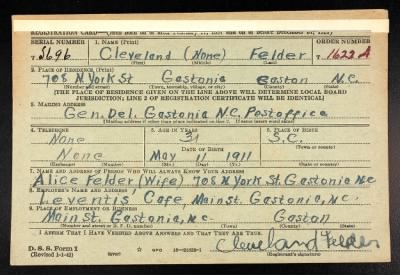 REGISTRATION CARD
SERIAL NUMBER 1. NAME (Print) ORDER NUMBER
T. 5696 Cleveland (None) Felder T. 1622 A
(First) (Middle) (Last)
2. PLACE OF RESIDENCE (Print)
708 N York St Gastonia Gaston N.C.
(Number and street) (Town, township, village, or city) (County) (State)
[THE PLACE OF RESIDENCE GIVEN ON THE LINE ABOVE WILL DETERMINE LOCAL BOARD
JURISDICTION; LINE 2 OF REGISTRATION CERTIFICATE WILL BE IDENTICAL]
3. MAILING ADDRESS
Gen. Del. Gastonia N.C. Postoffice
[Mailing address if other than place indicated on line 2. If same insert word same]
4. TELEPHONE 5. AGE IN YEARS 6. PLACE OF BIRTH
None 31 S.C.
DATE OF BIRTH (Town or county)
None May 11 1911
(Exchange) (Number) (Mo.) (Day) (Yr.) (State or country)
7. NAME AND ADDRESS OF PERSON WHO WILL ALWAYS KNOW YOUR ADDRESS
Alice Felder (Wife) 708 N York St. Gastonia N.C
8. EMPLOYER'S NAME AND ADDRESS
Leventis Cafe, Main St. Gastonia, N.C.
9. PLACE OF EMPLOYMENT OR BUSINESS
Main St. Gastonia, N.C. Gaston
(Number and street or R. F. D. number) (Town) (County) (State)
I AFFIRM THAT I HAVE VERIFIED ABOVE ANSWERS AND THAT THEY ARE TRUE.
D. S. S. Form 1
(Revised 1-1-42) (over) GPO Cleveland Felder
(Registrant's signature)